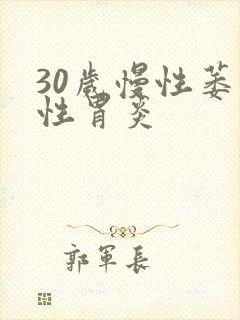 30歲慢性萎
性胃炎
郭軍長